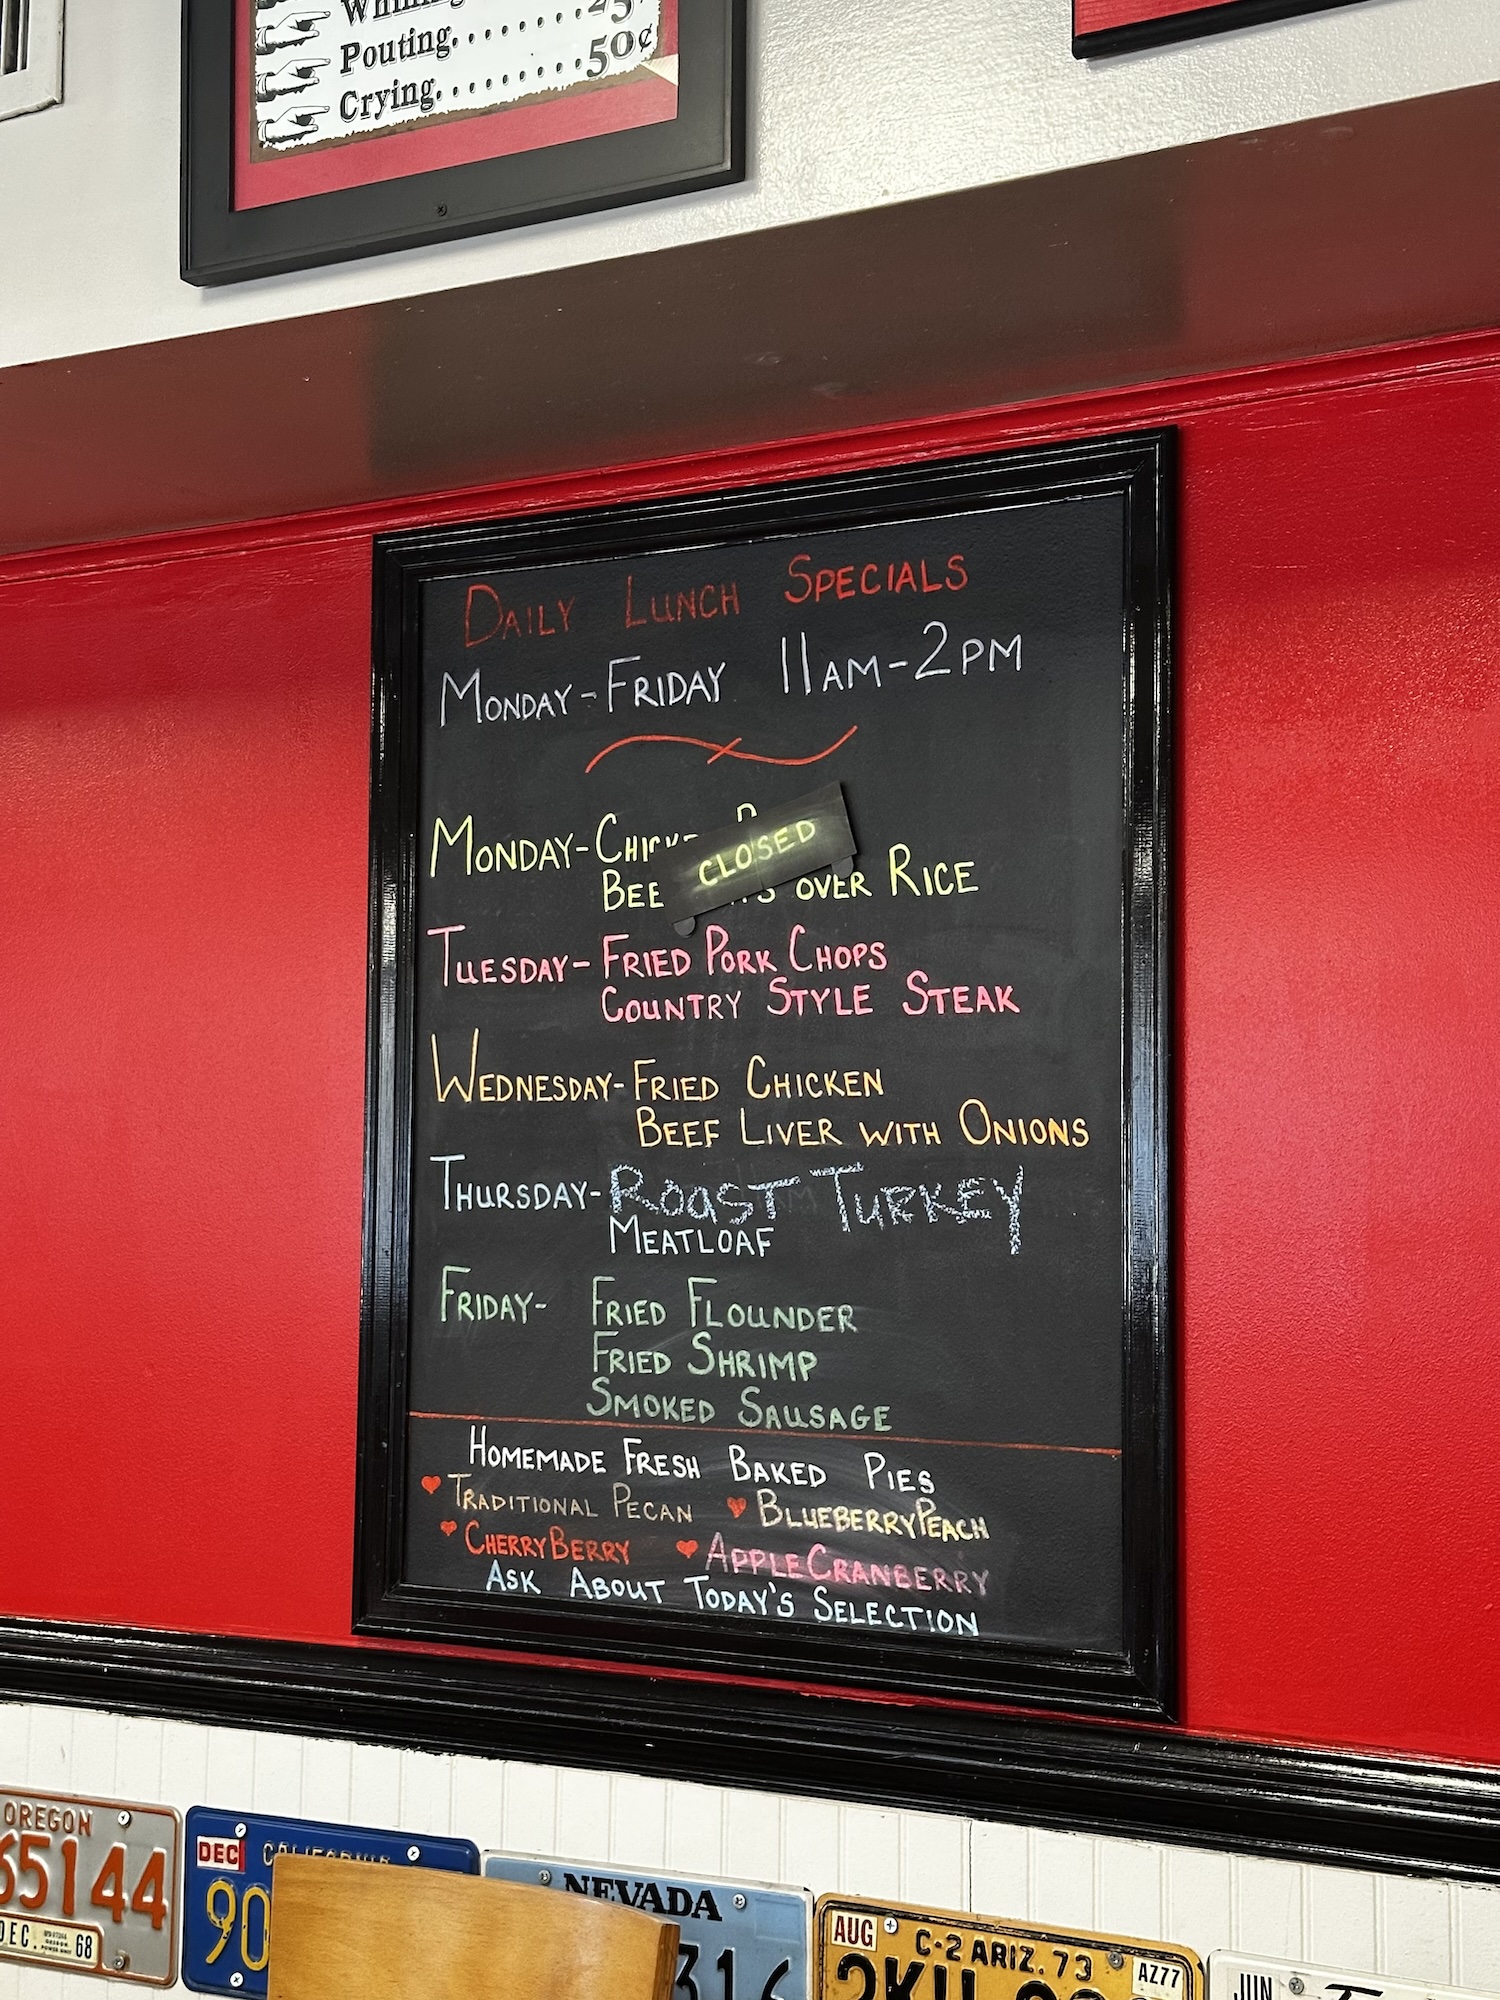 Pouting........25¢
Crying.........50¢
DAILY LUNCH SPECIALS
MONDAY-FRIDAY 11AM-2PM
MONDAY-
CLOSED
OVER RICE
TUESDAY- FRIED PORK CHOPS
COUNTRY STYLE STEAK
WEDNESDAY- FRIED CHICKEN
BEEF LIVER WITH ONIONS
THURSDAY- ROAST TURKEY
MEATLOAF
FRIDAY- FRIED FLOUNDER
FRIED SHRIMP
SMOKED SAUSAGE
HOMEMADE FRESH BAKED PIES
TRADITIONAL PECAN BLUEBERRYPEACH
CHERRYBERRY APPLECRANBERRY
ASK ABOUT TODAY'S SELECTION
OREGON
65144
DEC. 68
DEC CALIFORNIA
90
NEVADA
316
AUG C-2 ARIZ. 73 AZ77
JUN